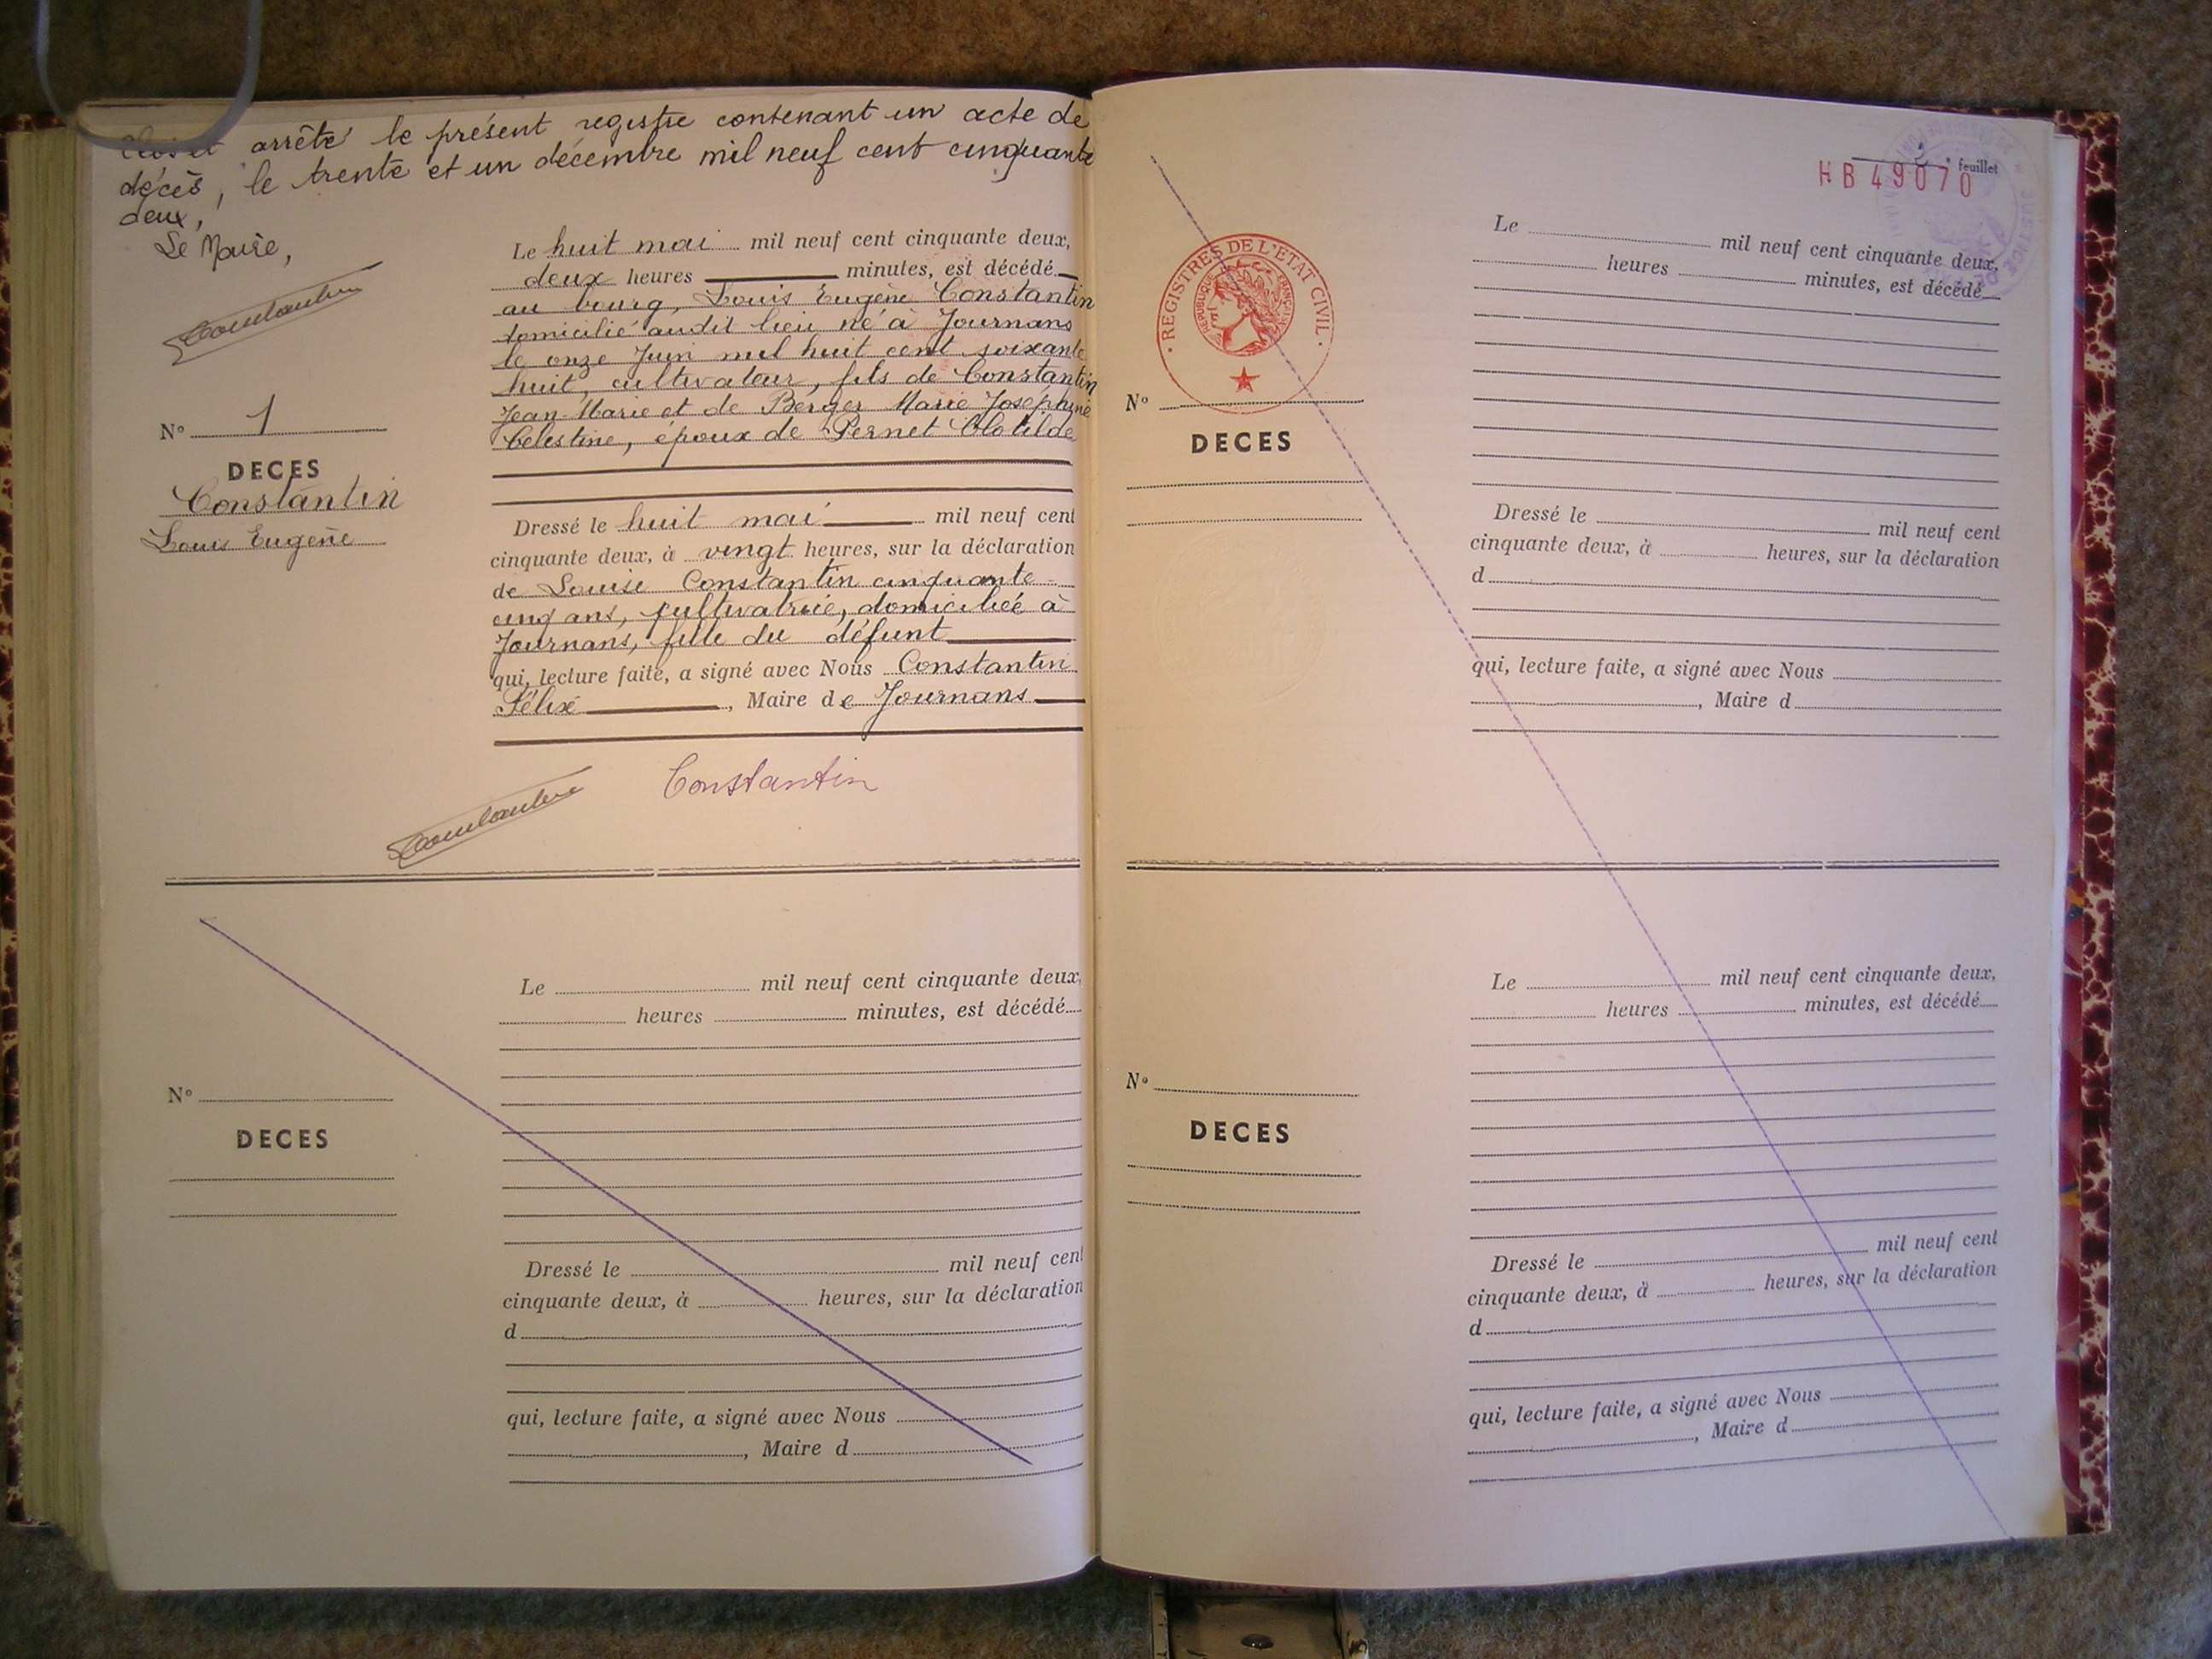 Clos et arrêté le présent registre contenant un acte de
décès, le trente et un décembre mil neuf cent cinquante
deux,
Le Maire,
Constantin
N° 1
DECES
Constantin
Louis Eugène
Le huit mai mil neuf cent cinquante deux,
deux heures minutes, est décédé
au bourg, Louis Eugène Constantin
domicilié audit lieu né à Journans
le onze Juin mil huit cent soixante
huit, cultivateur, fils de Constantin
Jean-Marie et de Berger Marie Josephine
Celestine, époux de Pernet Clotilde
Dressé le huit mai mil neuf cent
cinquante deux, à vingt heures, sur la déclaration
de Louise Constantin cinquante-
cinq ans, cultivatrice, domiciliée à
Journans, fille du défunt
qui, lecture faite, a signé avec Nous Constantin
Félix, Maire de Journans
Constantin
Constantin
N°
DECES
Le mil neuf cent cinquante deux,
heures minutes, est décédé
Dressé le mil neuf cent
cinquante deux, à heures, sur la déclaration
d
qui, lecture faite, a signé avec Nous
, Maire d
2e feuillet
HB 49070
REGISTRES DE L'ETAT CIVIL
REPUBLIQUE FRANÇAISE
N°
DECES
Le mil neuf cent cinquante deux,
heures minutes, est décédé
Dressé le mil neuf cent
cinquante deux, à heures, sur la déclaration
d
qui, lecture faite, a signé avec Nous
, Maire d
N°
DECES
Le mil neuf cent cinquante deux,
heures minutes, est décédé
Dressé le mil neuf cent
cinquante deux, à heures, sur la déclaration
d
qui, lecture faite, a signé avec Nous
, Maire d